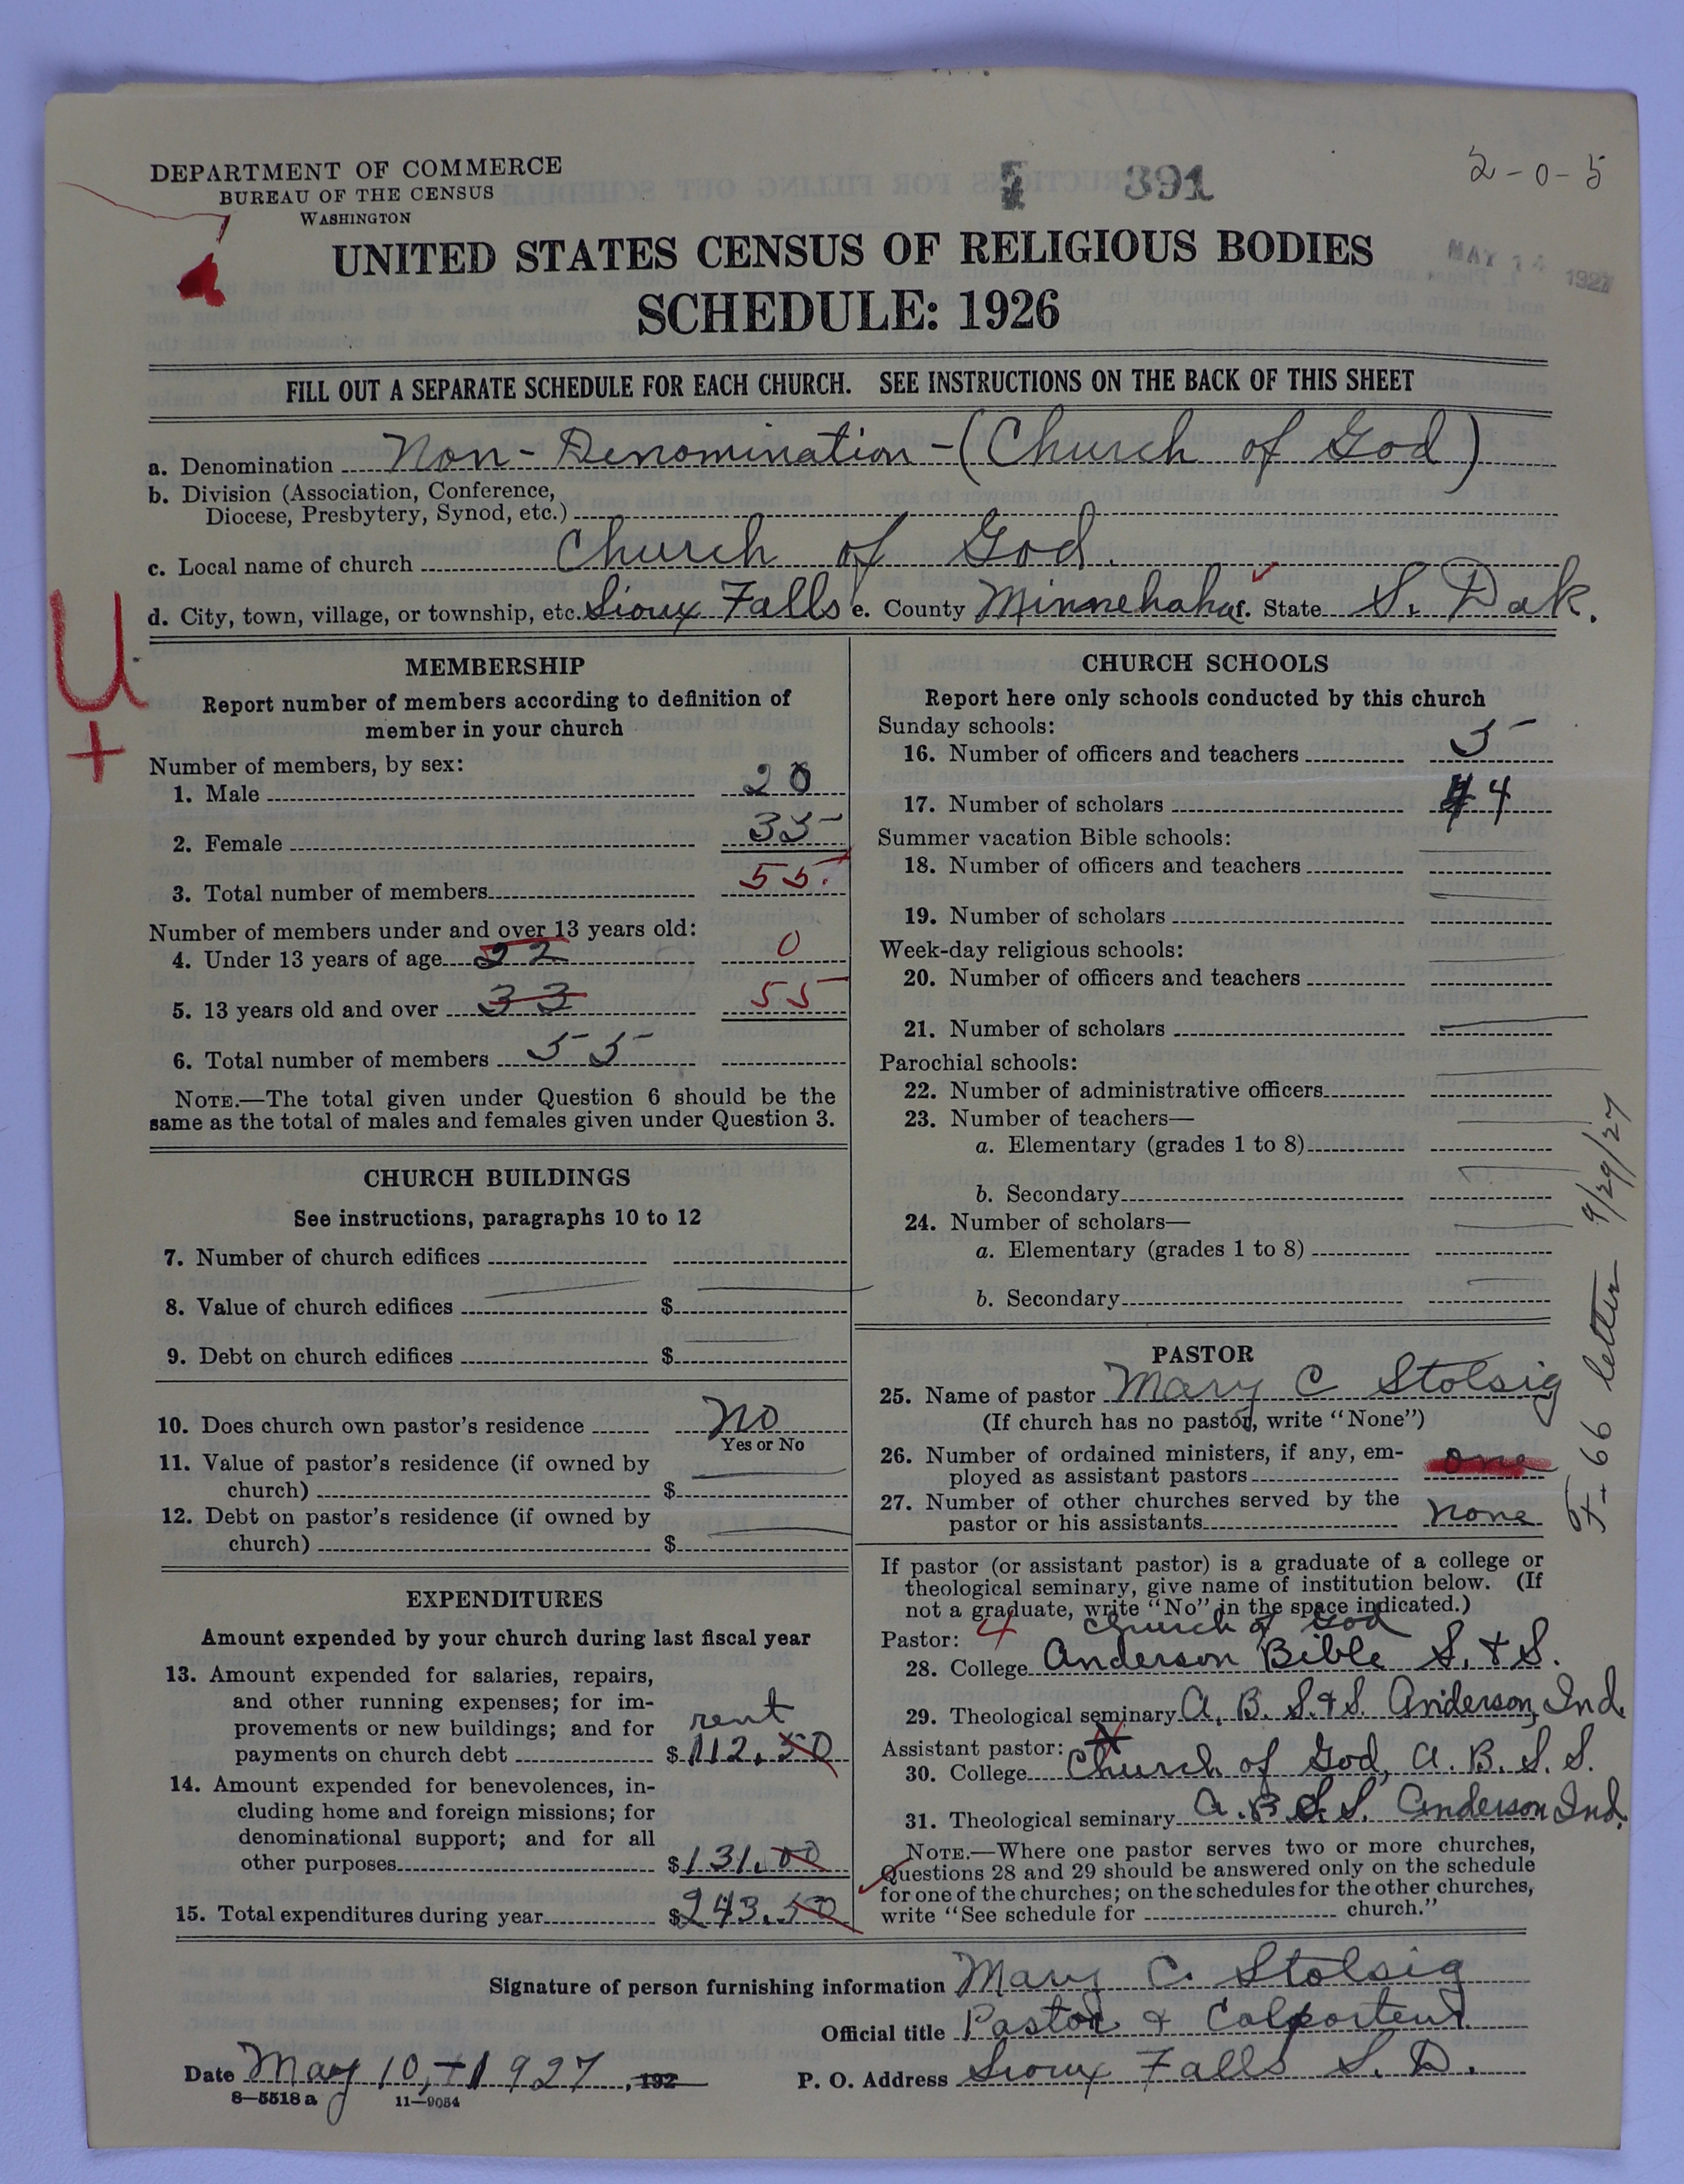 DEPARTMENT OF COMMERCE
BUREAU OF THE CENSUS
WASHINGTON
391
2-0-5
MAY 14 1927
UNITED STATES CENSUS OF RELIGIOUS BODIES
SCHEDULE: 1926
FILL OUT A SEPARATE SCHEDULE FOR EACH CHURCH. SEE INSTRUCTIONS ON THE BACK OF THIS SHEET
a. Denomination Non-Denomination-(Church of God)
b. Division (Association, Conference,
Diocese, Presbytery, Synod, etc.)
c. Local name of church Church of God.
d. City, town, village, or township, etc. Sioux Falls e. County Minnehaha f. State S. Dak.
U
+
MEMBERSHIP
Report number of members according to definition of
member in your church
Number of members, by sex:
1. Male 20
2. Female 35
3. Total number of members 55.
Number of members under and over 13 years old:
4. Under 13 years of age 22 0
5. 13 years old and over 33 55
6. Total number of members 55
NOTE.—The total given under Question 6 should be the
same as the total of males and females given under Question 3.
CHURCH BUILDINGS
See instructions, paragraphs 10 to 12
7. Number of church edifices
8. Value of church edifices $
9. Debt on church edifices $
10. Does church own pastor's residence No
Yes or No
11. Value of pastor's residence (if owned by
church) $
12. Debt on pastor's residence (if owned by
church) $
EXPENDITURES
Amount expended by your church during last fiscal year
13. Amount expended for salaries, repairs,
and other running expenses; for im-
provements or new buildings; and for rent
payments on church debt $112.50
14. Amount expended for benevolences, in-
cluding home and foreign missions; for
denominational support; and for all
other purposes $131.00
15. Total expenditures during year $243.50
CHURCH SCHOOLS
Report here only schools conducted by this church
Sunday schools:
16. Number of officers and teachers 5
17. Number of scholars 44
Summer vacation Bible schools:
18. Number of officers and teachers
19. Number of scholars
Week-day religious schools:
20. Number of officers and teachers
21. Number of scholars
Parochial schools:
22. Number of administrative officers
23. Number of teachers—
a. Elementary (grades 1 to 8)
b. Secondary
24. Number of scholars—
a. Elementary (grades 1 to 8)
b. Secondary
PASTOR
25. Name of pastor Mary C Stolsig
(If church has no pastor, write "None")
26. Number of ordained ministers, if any, em-
ployed as assistant pastors one
27. Number of other churches served by the
pastor or his assistants none
If pastor (or assistant pastor) is a graduate of a college or
theological seminary, give name of institution below. (If
not a graduate, write "No" in the space indicated.)
Pastor: 4 Church of God
28. College Anderson Bible S. & S.
29. Theological seminary A. B. S. & S. Anderson, Ind.
Assistant pastor:
30. College Church of God, A. B. S. S.
31. Theological seminary A. B. S. S. Anderson Ind.
NOTE.—Where one pastor serves two or more churches,
Questions 28 and 29 should be answered only on the schedule
for one of the churches; on the schedules for the other churches,
write "See schedule for church."
66 letter 9/29/27
Signature of person furnishing information Mary C. Stolsig
Official title Pastor & Colporteur
Date May 10, 1927, 192
P. O. Address Sioux Falls S. D.
8—5518 a
11—9054